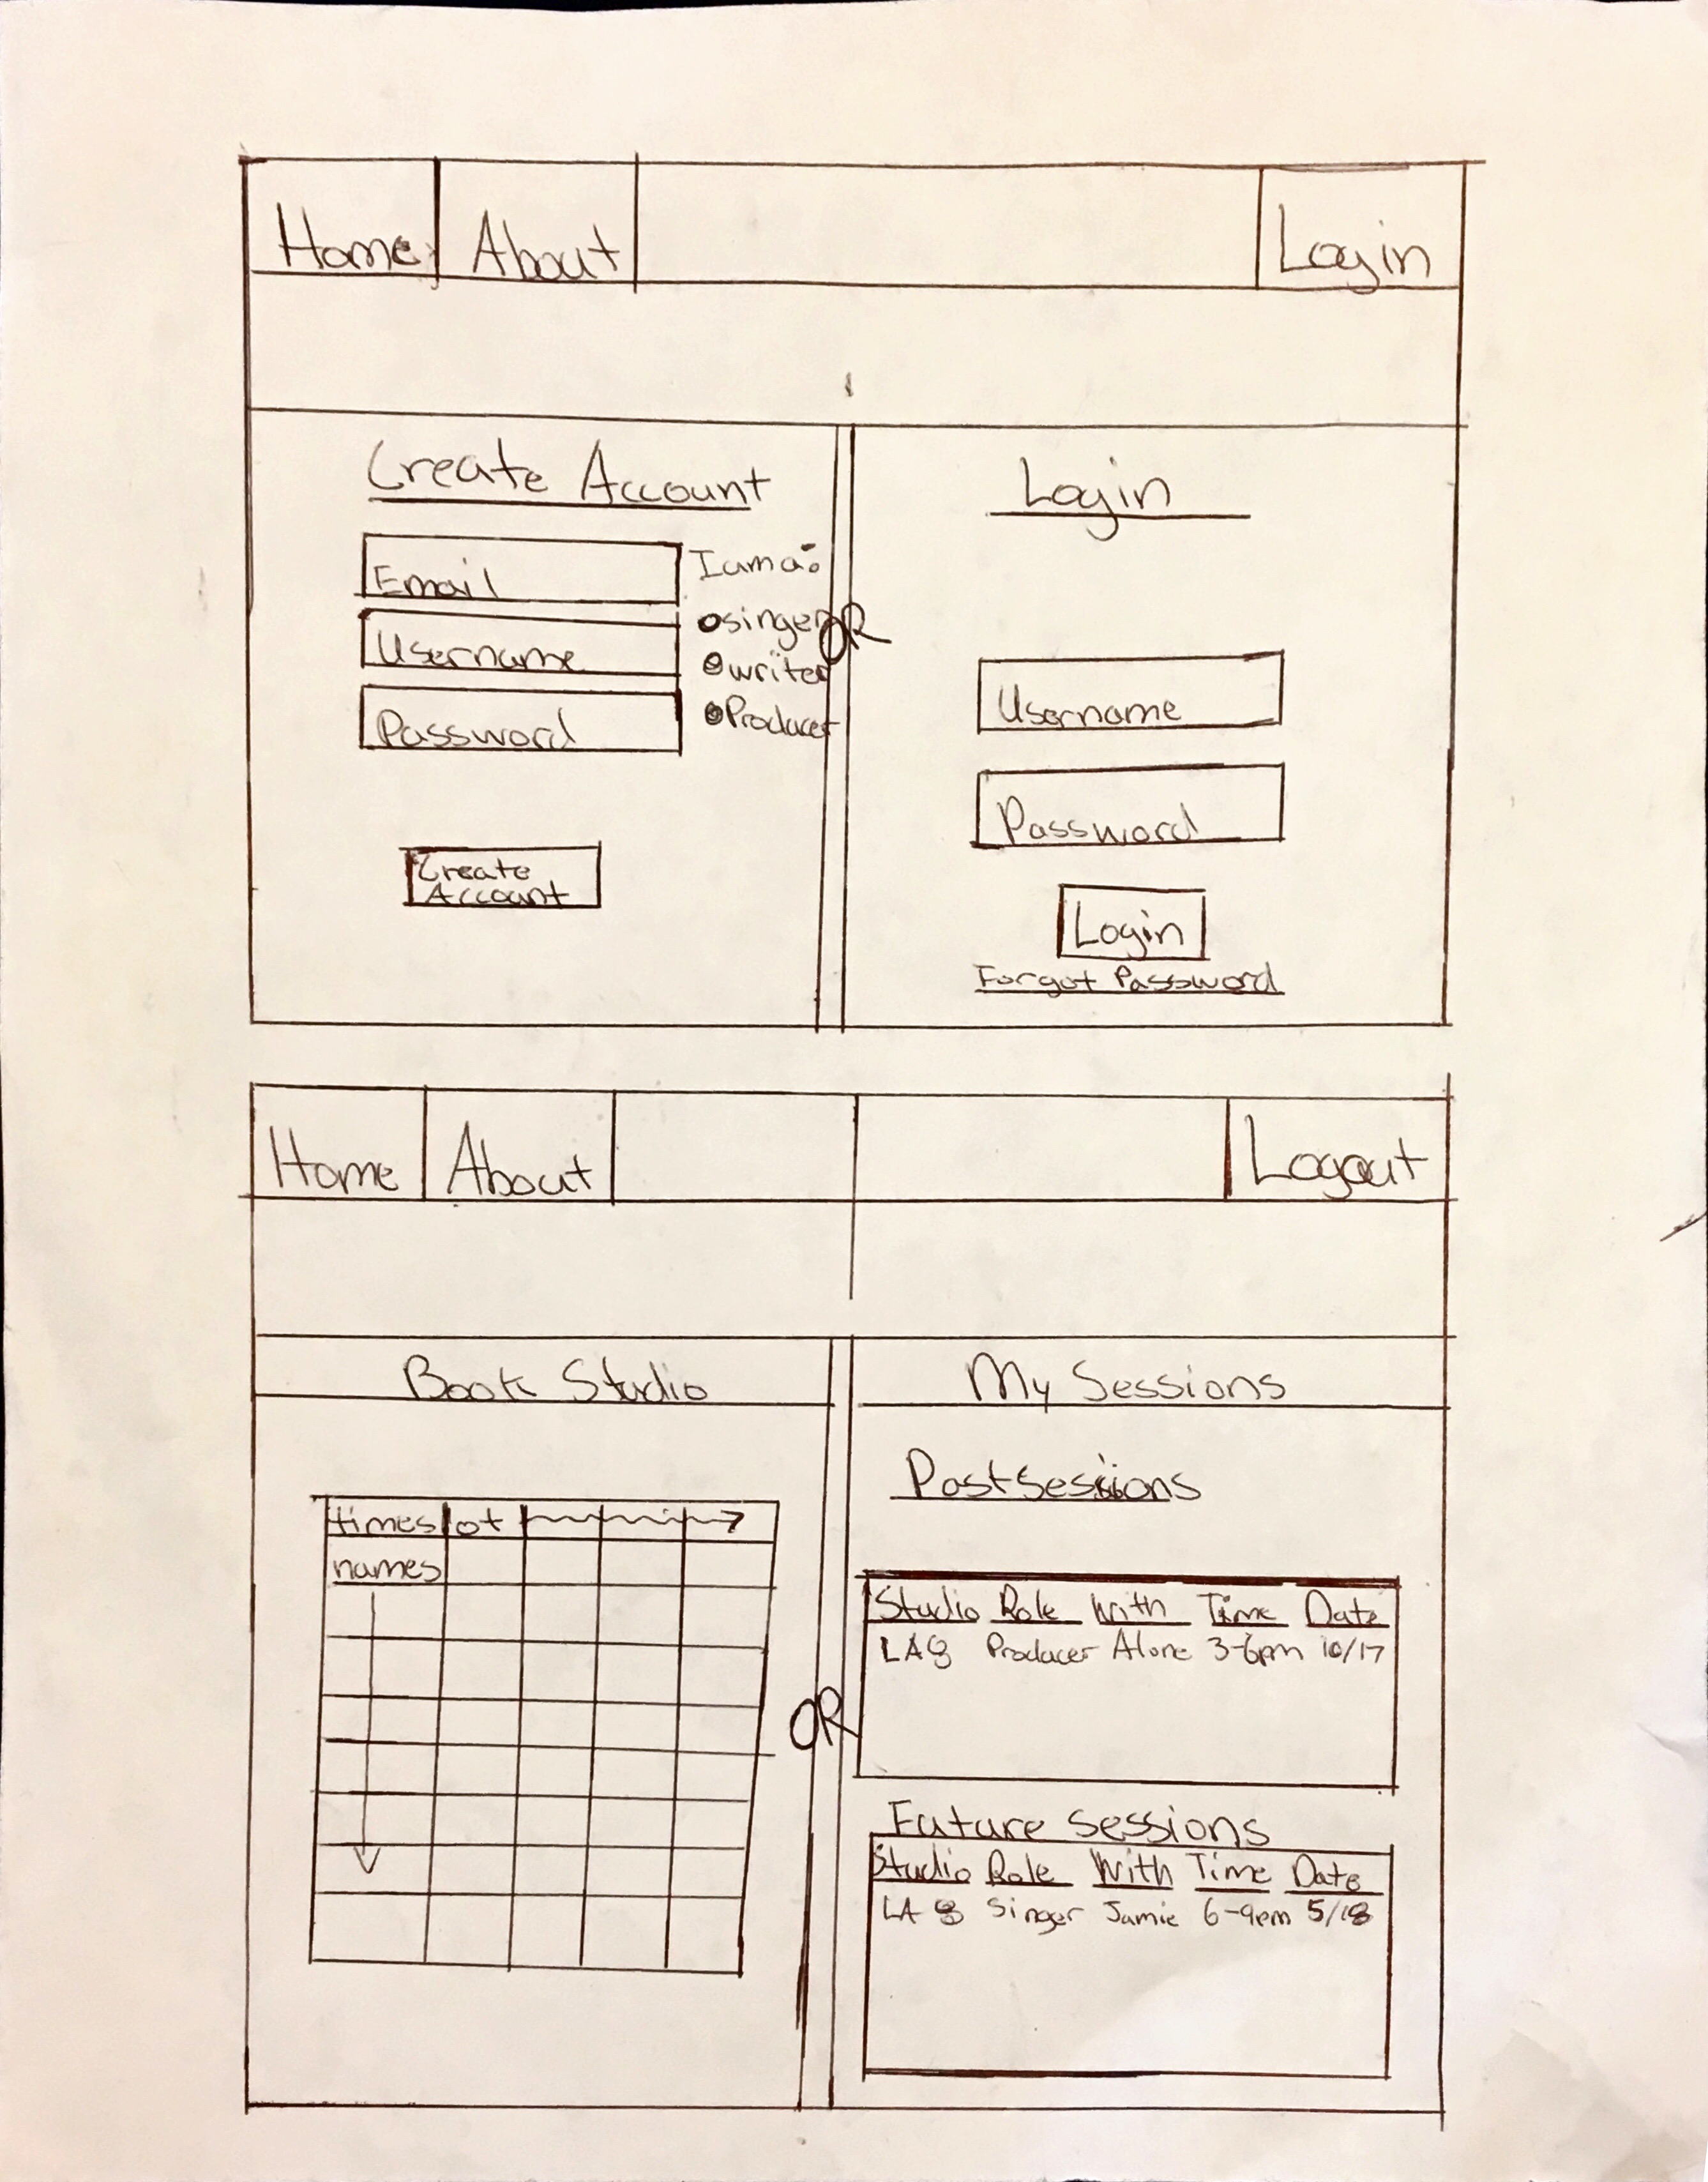 Home About Login
Create Account
Email
Username
Password
I am a:
singer
writer
Producer
Create
Account
OR
Login
Username
Password
Login
Forgot Password
Home About Logout
Book Studio
timeslot
names
OR
My Sessions
Past sessions
Studio Role With Time Date
LA8 Producer Alone 3-6pm 10/17
Future sessions
Studio Role With Time Date
LA 8 Singer Jamie 6-9pm 5/18